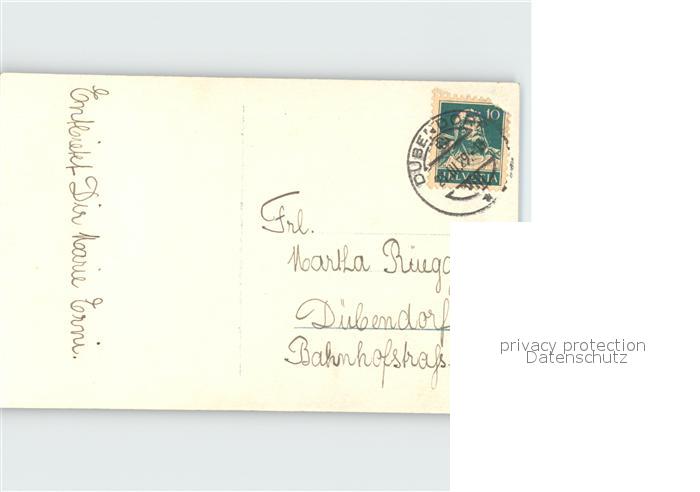 Entbietet Dir Marie Erni.
10
HELVETIA
DÜBENDORF
Frl.
Martha Rüegg
Dübendorf
Bahnhofstrass
privacy protection
Datenschutz